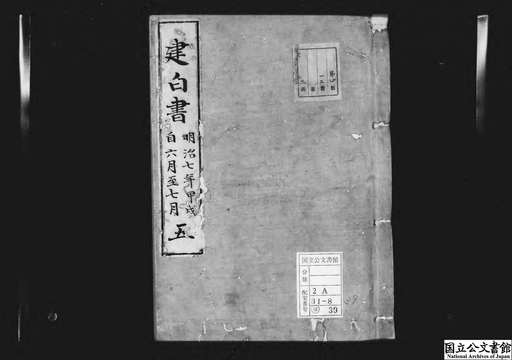 建白書
明治七年甲戌
自六月至七月
五
国立公文書館
分類
配架番号
2 A
31-8
39
国立公文書館
National Archives of Japan